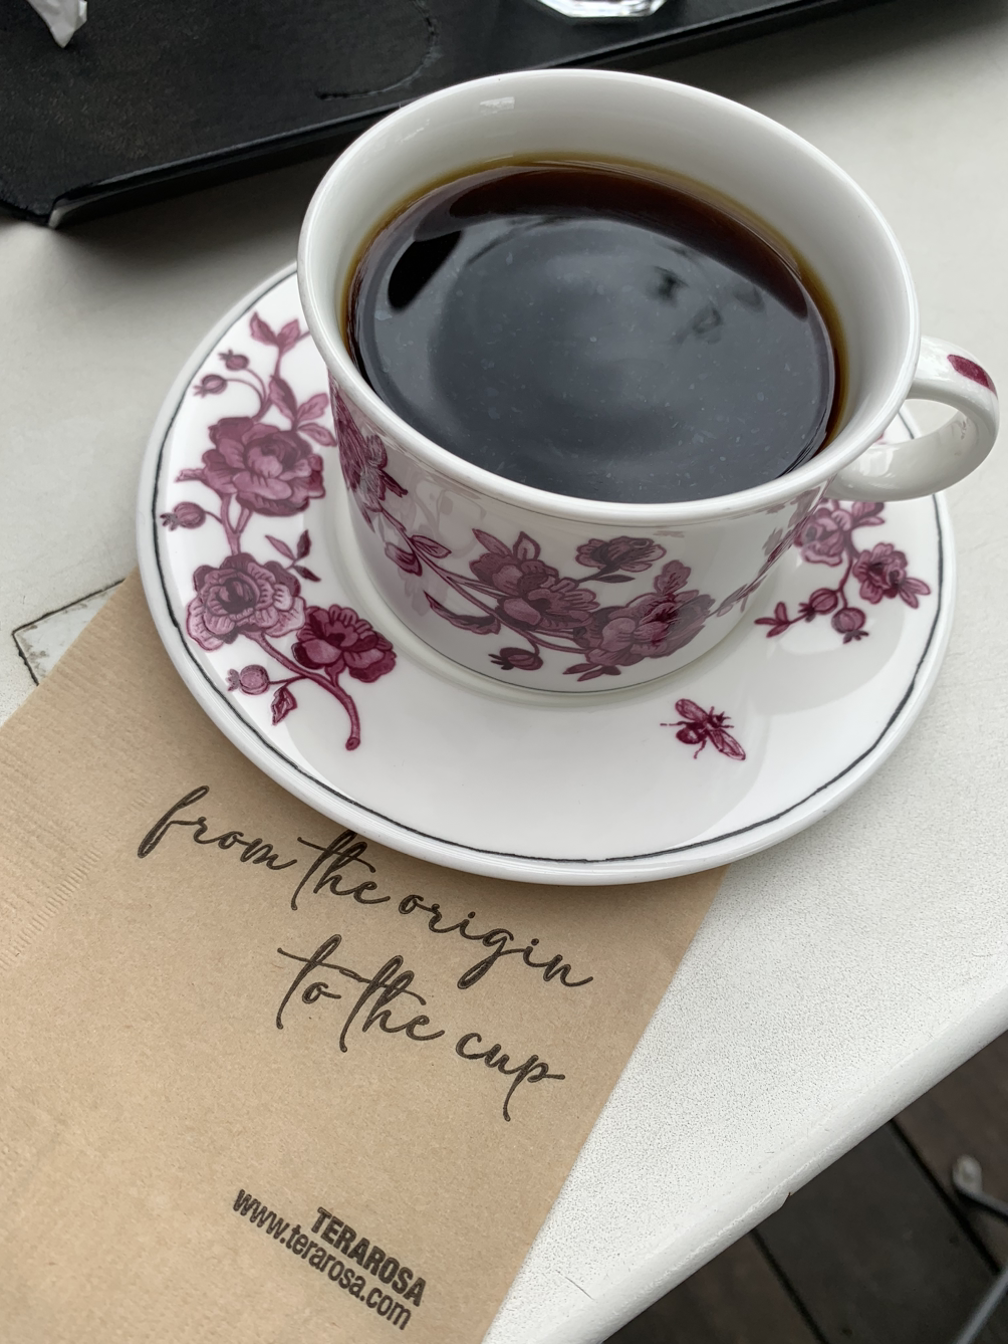 from the origin
to the cup
TERAROSA
www.terarosa.com